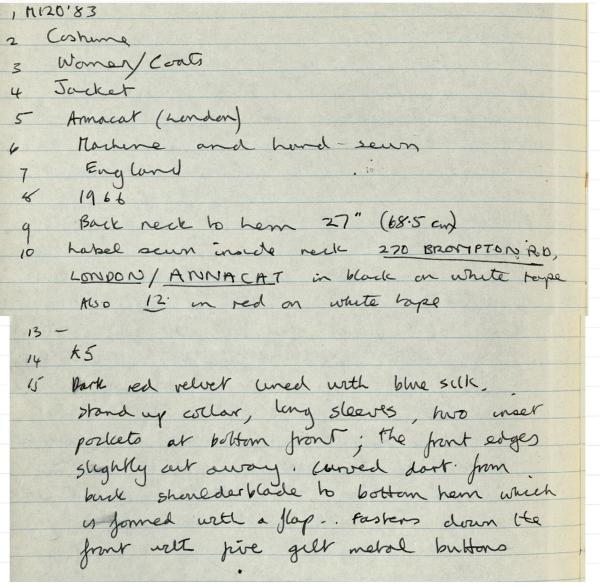 1, M120'83
2 Costume
3 Women/Coats
4 Jacket
5 Annacat (London)
6 Machine and hand-sewn
7 England
8 1966
9 Back neck to hem 27" (68.5 cm)
10 Label sewn inside neck 270 BROMPTON RD,
LONDON/ANNACAT in black on white tape
ALSO 12 in red on white tape
13 -
14 K5
15 Dark red velvet lined with blue silk.
Stand up collar, long sleeves, two inset
pockets at bottom front; the front edges
slightly cut away. Curved dart from
back shoulderblade to bottom hem which
is formed with a flap.. Fastens down the
front with five gilt metal buttons